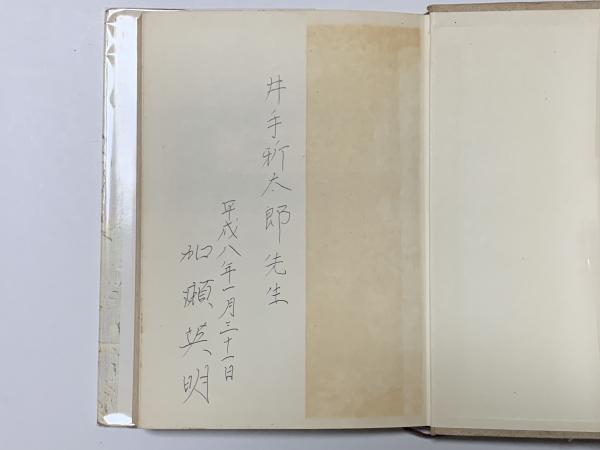 井手祈太郎先生
平成八年一月三十一日
加瀬英明